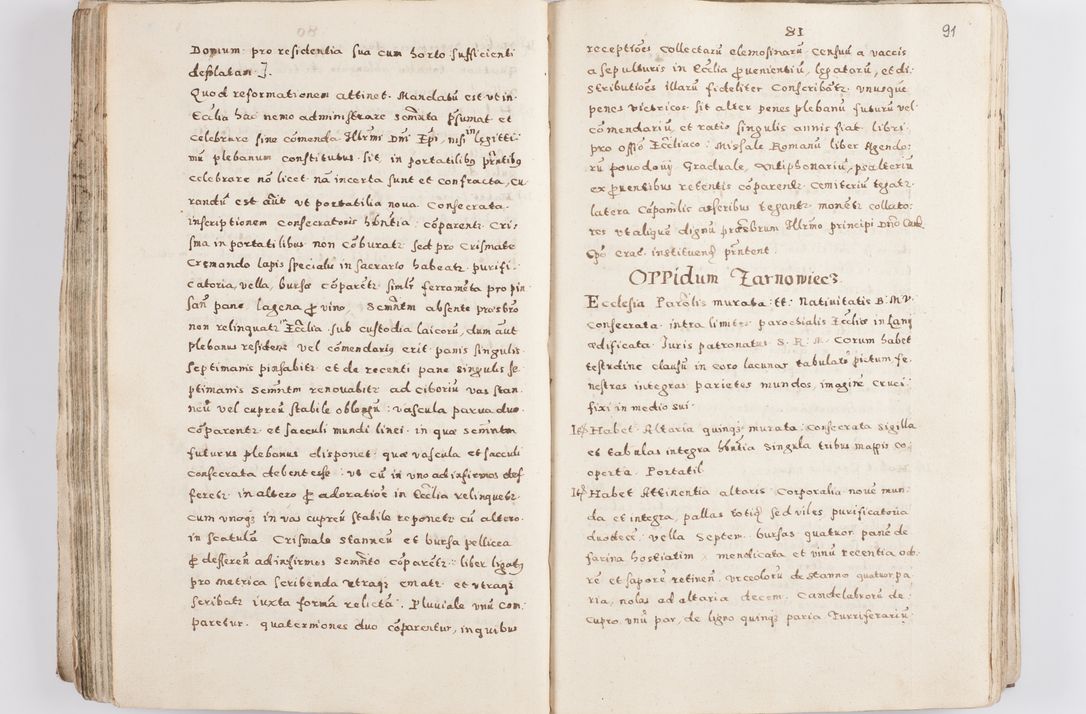 Domum pro residentia sua cum horto sufficienti
desolatam].
Quod reformationem attinet. Mandatũ est vt in
Ecclia hac nemo administrare semẽta p̃sumat et
celebrare sine cõmenda Illr̃mi Dñi Ep̃i, nisi in legitti
mũ plebanum constitutus sit, in portatilibꝰ p̃ntibꝰ
celebrare nõ licet nã incerta sunt et confracta, cu
randũ est aũt vt portatilia noua Consecrata
inscriptionem consecratoris hñtia cõparentr Cri
sma in portatilibus non cõburatr sed pro Crismate
Cremando lapis specialis in sacrario habeatr purifi
catoria, vella, bursæ cõparẽtr simlr ferramẽta pro pin
san pane, lagena p vino, Semẽtm absente præsbro
non relinquatr Ecclia sub custodia laicorũ, dum aũt
plebanus residens vel cõmendariꝰ erit panis singulis
septimanis pinsabitr et de recenti pane singulis se
ptimanis Semẽtm renouabitr ad Citoriũ vas stan
neũ vel cupreũ stabile oblongũ: vascula parua duo
cõparentr et sacculi mundi linei in quæ semẽtm
futurus plebanus disponet quæ vascula et sacculi
consecrata debent esse: vt cũ in vno ad infirmos def
feretr in altero p adoratiõe in Ecclia relinquetr
cum vnoqꝫ in vas cupreũ stabile reponetr cũ altero
in scatula Crismale stanneũ et bursa pellicea
p defferen ad infirmos Semẽto cõparẽtr: liber ligatꝰ
pro metrica scribenda vtraqꝫ ematr et vtraqꝫ
scribatr iuxta formã relictã. Pluuiale vnũ Com
paretur quaterniones duo cõparentur, in quibus
81
91
receptiões collectarũ elemosinarũ Censuũ a vaccis
a sepulturis in Ecclia puenientiũ, legatorũ, et di
stributiões illarũ fideliter Conscribẽtr vnusqꝫ
penes victricos sit alter penes plebanũ futurũ vel
cõmendariũ, et ratio singulis annis fiat libri
pro offõ Eccliaco: Missale Romanũ liber Agendo
rũ Powodowij Graduale, Antiphonariũ, psalteriũ
ex puentibus retentis cõparentr Cemiteriũ tegatr
latera Cãpanilis asseribus tegantr monetr collato
res vt aliquẽ dignũ præsbrum Illr̃mo principi Dño Card
Epõ Crac. instituend præntent.
OPPidum Zarnowiecz
Ecclesia Parõlis murata: tt: Natiuitatis B. M. V.
Consecrata intra limites parochialis Eccliæ in Lanj
ædificata Iuris patronatus S. R. M. Corum habet
testudine clausũ in toto lacunar tabulatũ pictum, fe
nestras integras parietes mundos, imaginẽ Cruci
fixi in medio sui.
Itẽ Habet Altaria quinqꝫ murata: Consecrata sigilla
et tabulas integra hñtia singula tribus mappis co
operta. Portatil
Itẽ Habet Attinentia altaris Corporalia noue mun
da et integra, pallas totiđ sed viles purificatoria
duodecĩ vella Septem. bursas quatuor panẽ de
farina hostiatim mendicata et vinũ recentia odo
rẽ et saporẽ retinen. vrceolorũ de stanno quatuor pa
ria, nolas ad altaria decem. Candelabrorũ de
Cupro vnũ par, de ligno quinqꝫ paria Turriferariũ